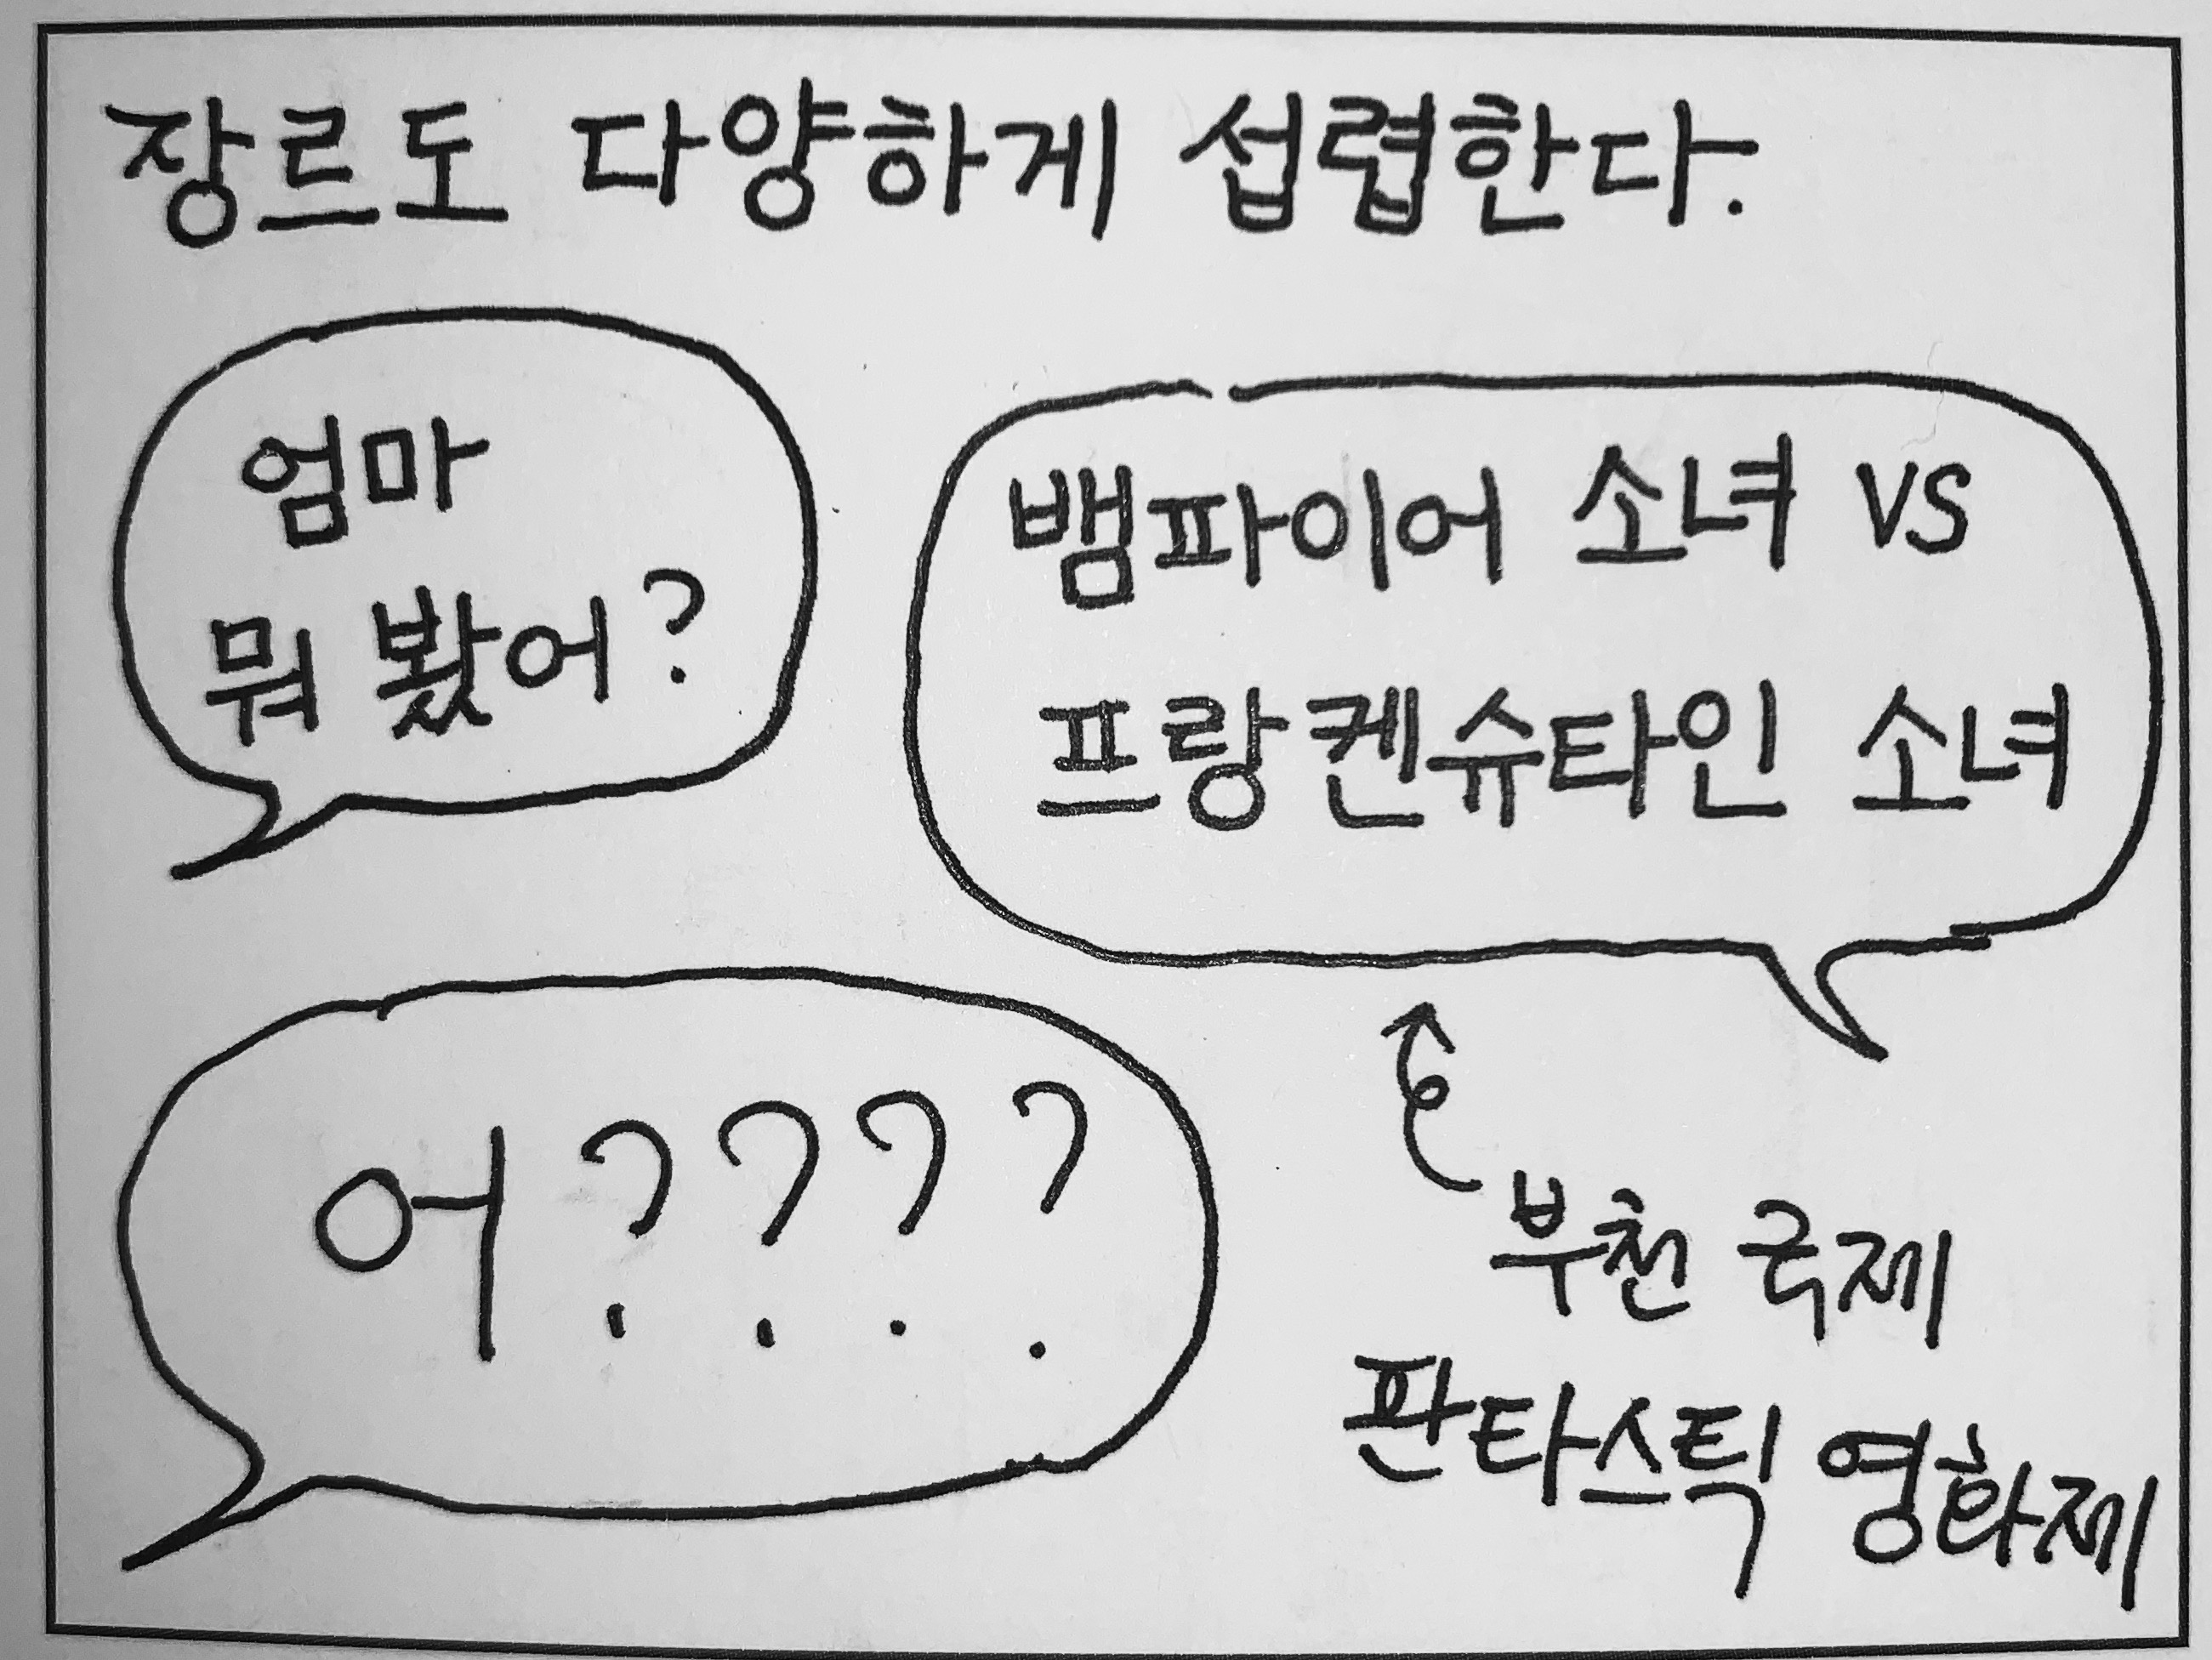 장르도 다양하게 섭렵한다.
엄마
뭐 봤어?
뱀파이어 소녀 VS
프랑켄슈타인 소녀
어????
부천 국제
판타스틱 영화제